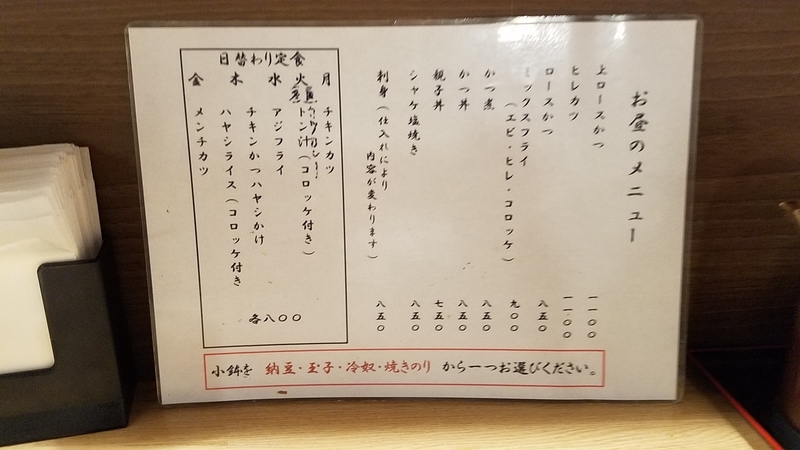 お昼のメニュー
上ロースかつ 一一〇〇
ヒレカツ 一一〇〇
ロースかつ 八五〇
ミックスフライ 九〇〇
(エビ・ヒレ・コロッケ)
かつ煮 八五〇
かつ丼 八五〇
親子丼 七五〇
シャケ塩焼き 八五〇
刺身(仕入れにより 八五〇
内容が変わります)
日替わり定食
月 チキンカツ
火 トン汁(コロッケ付き)
水 アジフライ
木 チキンかつハヤシかけ
ハヤシライス(コロッケ付き
金 メンチカツ
各八〇〇
小鉢を 納豆・玉子・冷奴・焼きのり から一つお選びください。